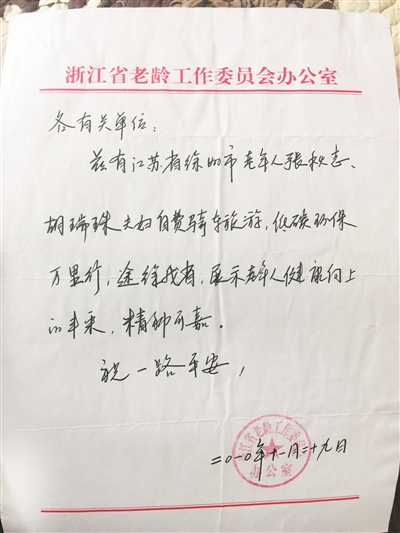 浙江省老龄工作委员会办公室
各有关单位:
兹有江苏省徐州市老年人张秋志、
胡瑞珠夫妇自费骑车旅游,低碳环保
万里行,途径我省,展示老年人健康向上
的丰采,精神可嘉。
祝一路平安!
二〇一〇年十一月二十九日
浙江省老龄工作委员会
办公室